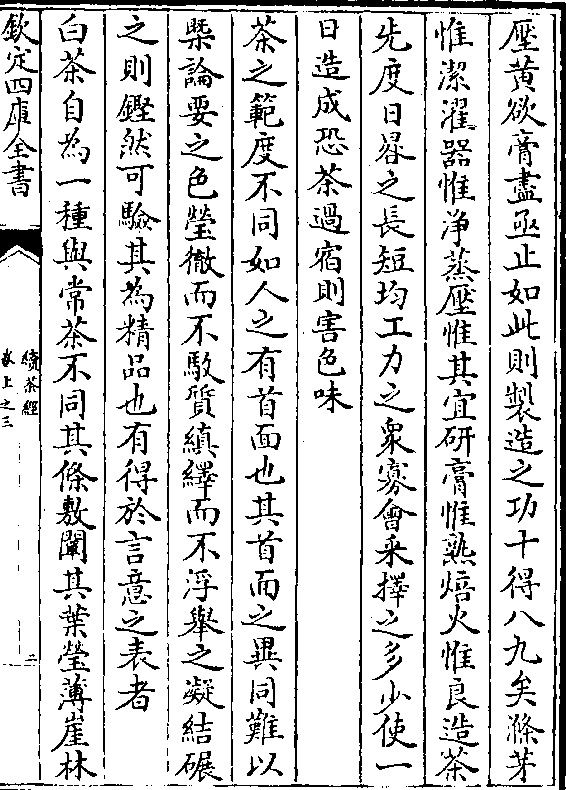 壓黄欲膏盡亟止如此則製造之功十得八九矣滌芽
惟潔濯器惟浄蒸壓惟其宜研膏惟熟焙火惟良造茶
先度日晷之長短均工力之衆寡會采擇之多少使一
日造成恐茶過宿則害色味
茶之範度不同如人之有首面也其首面之異同難以
槩論要之色瑩徹而不駁質縝繹而不浮舉之凝結碾
之則鏗然可驗其為精品也有得於言意之表者
白茶自為一種與常茶不同其條敷闡其葉瑩薄崖林
欽定四庫全書
續茶經
卷上之三
二